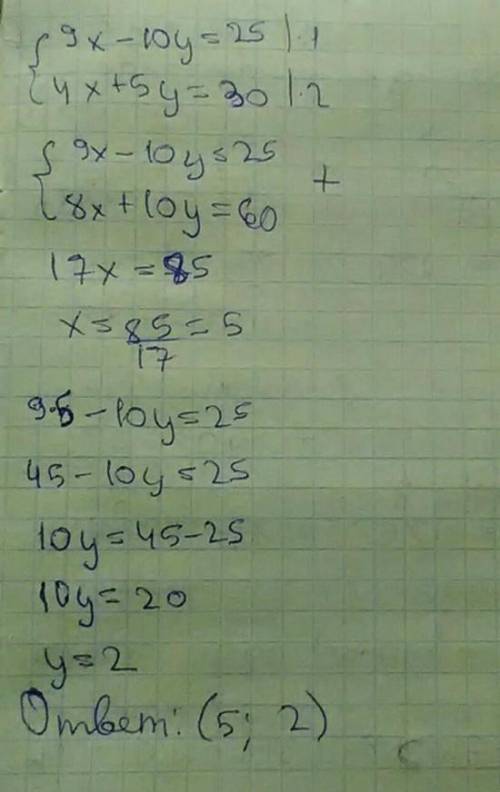 { 9x-10y=25 |·1
{ 4x+5y=30 |·2
{ 9x-10y=25
{ 8x+10y=60 +
17x=85
x=85/17=5
9·5-10y=25
45-10y=25
10y=45-25
10y=20
y=2
Ответ: (5; 2)